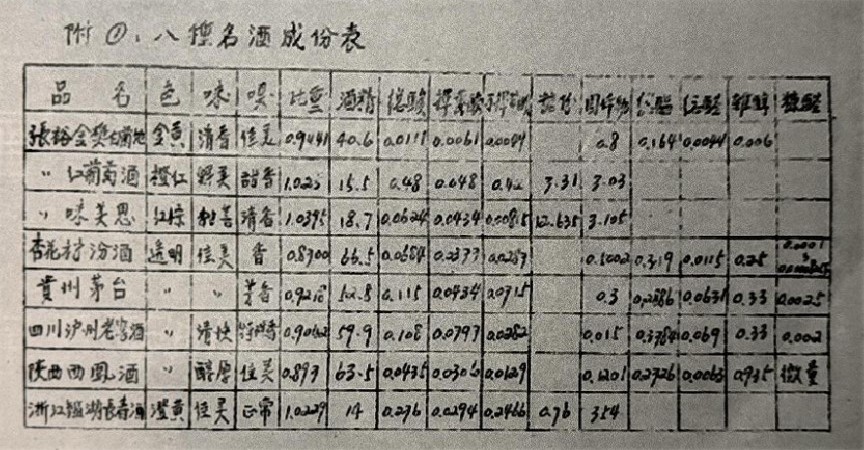 附①、八種名酒成份表
品名 色 味 嗅 比重 酒精 總酸 揮發酸 不揮發酸 糖份 固体物 总酯 总醛 雜醇 糠醛
張裕金獎白蘭地 金黄 清香 佳美 0.9441 40.6 0.0111 0.0061 0.0.8 0.164 0.0044 0.006
〃 红葡萄酒 橙红 鲜美 甜香 15.5 0.48 0.048 3.31 3.03
〃 味美思 红棕 清香 1.0395 18.7 0.0624 0.0434 12.635 3.105
杏花村汾酒 透明 佳美 香 0.8300 66.5 0.0684 0.2377 0.0287 0.319 0.0115 0.25 0.0001
貴州茅台 〃 〃 0.115 0.0434 0.0715 0.3 0.0631 0.33 0.0025
四川沪州老窖酒 〃 清快 59.9 0.108 0.0797 0.0282 0.015 0.3784 0.069 0.33 0.002
陕西西鳳酒 〃 醇厚 佳美 0.893 63.5 0.0435 0.0306 0.0129 0.1201 0.2726 0.0063 微量
浙江鑑湖長春酒 澄黄 佳美 正常 1.0229 14 0.276 0.0294 0.2466 0.76 3.54